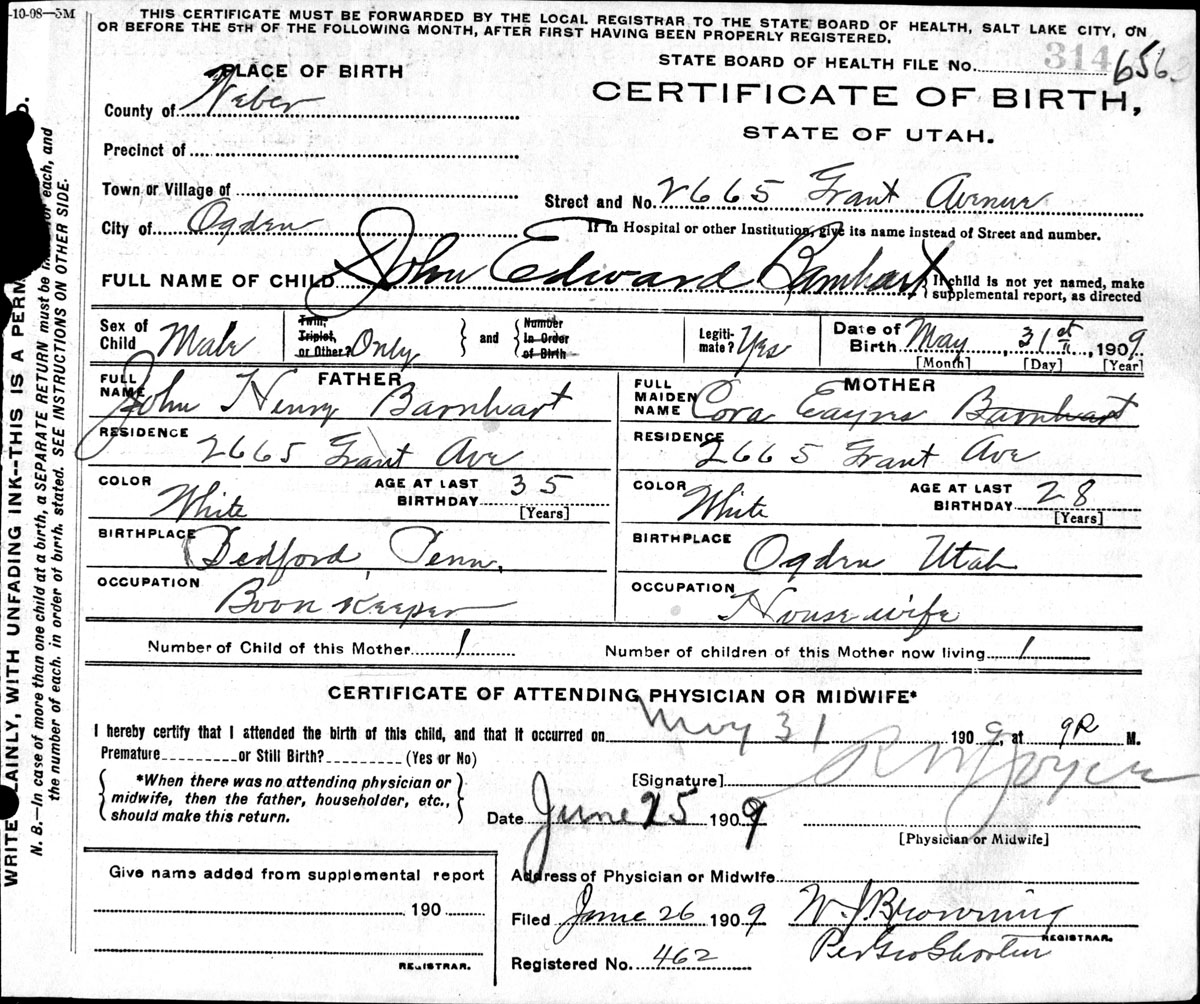 -10-08—5M
THIS CERTIFICATE MUST BE FORWARDED BY THE LOCAL REGISTRAR TO THE STATE BOARD OF HEALTH, SALT LAKE CITY, ON
OR BEFORE THE 5TH OF THE FOLLOWING MONTH, AFTER FIRST HAVING BEEN PROPERLY REGISTERED.
STATE BOARD OF HEALTH FILE No. 314 656
PLACE OF BIRTH
CERTIFICATE OF BIRTH,
STATE OF UTAH.
County of Weber
Precinct of
Town or Village of
Street and No. 2665 Grant Avenue
City of Ogden
If in Hospital or other Institution, give its name instead of Street and number.
FULL NAME OF CHILD John Edward Barnhart
If child is not yet named, make
supplemental report, as directed
Sex of Child Male
Twin, Triplet, or Other? Only
and
Number In Order of Birth
Legiti-mate? Yes
Date of Birth May, 31st, 1909
[Month] [Day] [Year]
FATHER
FULL NAME John Henry Barnhart
RESIDENCE 2665 Grant Ave
COLOR White
AGE AT LAST BIRTHDAY 35
[Years]
BIRTHPLACE Bedford, Penn.
OCCUPATION Book Keeper
MOTHER
FULL MAIDEN NAME Cora Eayrs Barnhart
RESIDENCE 2665 Grant Ave
COLOR White
AGE AT LAST BIRTHDAY 28
[Years]
BIRTHPLACE Ogden Utah
OCCUPATION Housewife
Number of Child of this Mother 1
Number of children of this Mother now living 1
CERTIFICATE OF ATTENDING PHYSICIAN OR MIDWIFE*
I hereby certify that I attended the birth of this child, and that it occurred on May 31 1909, at 9 M.
Premature or Still Birth? (Yes or No)
*When there was no attending physician or
midwife, then the father, householder, etc.,
should make this return.
[Signature]
Date June 25 1909
[Physician or Midwife]
Give name added from supplemental report
190
REGISTRAR.
Address of Physician or Midwife
Filed June 26 1909
W. J. Browning
REGISTRAR.
Per Geo Shorten
Registered No. 462
WRITE PLAINLY, WITH UNFADING INK--THIS IS A PERM
N. B.—In case of more than one child at a birth, a SEPARATE RETURN must be for each, and
the number of each, in order of birth, stated. SEE INSTRUCTIONS ON OTHER SIDE.